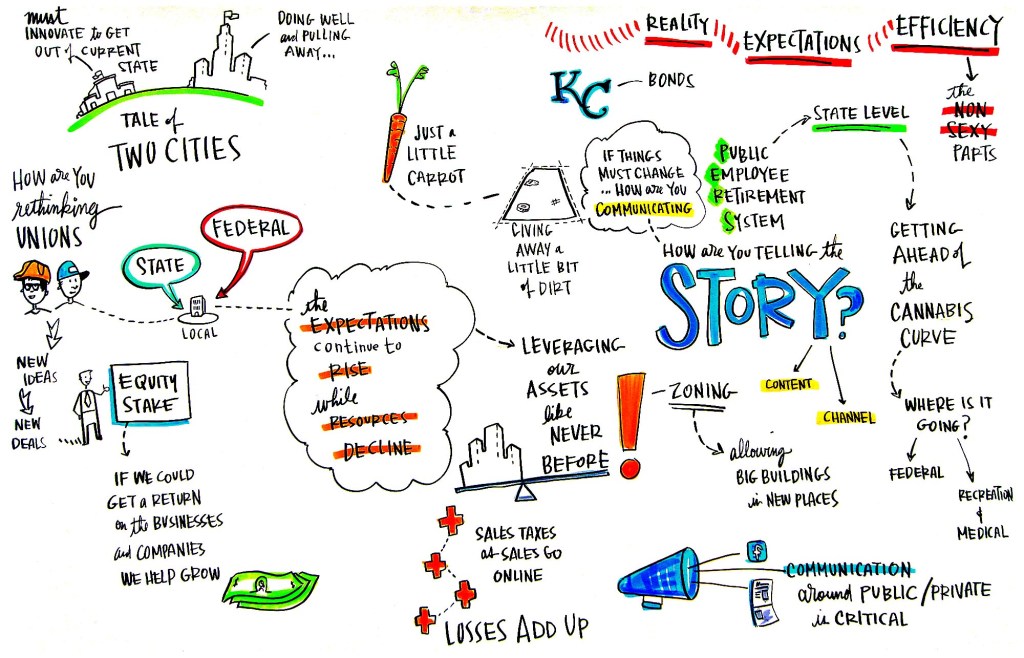 must
INNOVATE to GET
OUT of CURRENT
STATE
DOING WELL
and PULLING
AWAY...
TALE of
TWO CITIES
JUST A
LITTLE
CARROT
KC
BONDS
REALITY
EXPECTATIONS
EFFICIENCY
the
NON
SEXY
PARTS
IF THINGS
MUST CHANGE
... HOW are YOU
COMMUNICATING
GIVING
AWAY A
LITTLE BIT
of DIRT
PUBLIC
EMPLOYEE
RETIREMENT
SYSTEM
STATE LEVEL
GETTING
AHEAD of
the
CANNABIS
CURVE
WHERE IS IT
GOING?
FEDERAL
RECREATION
&
MEDICAL
HOW are YOU
rethinking
UNIONS
NEW
IDEAS
NEW
DEALS
STATE
FEDERAL
LOCAL
EQUITY
STAKE
IF WE COULD
GET A RETURN
on the BUSINESSES
and COMPANIES
WE HELP GROW
the
EXPECTATIONS
continue to
RISE
while
RESOURCES
DECLINE
LEVERAGING
our
ASSETS
like
NEVER
BEFORE
!
HOW are YOU TELLING the
STORY?
CONTENT
CHANNEL
ZONING
allowing
BIG BUILDINGS
in NEW PLACES
SALES TAXES
as SALES GO
ONLINE
LOSSES ADD UP
COMMUNICATION
around PUBLIC/PRIVATE
is CRITICAL